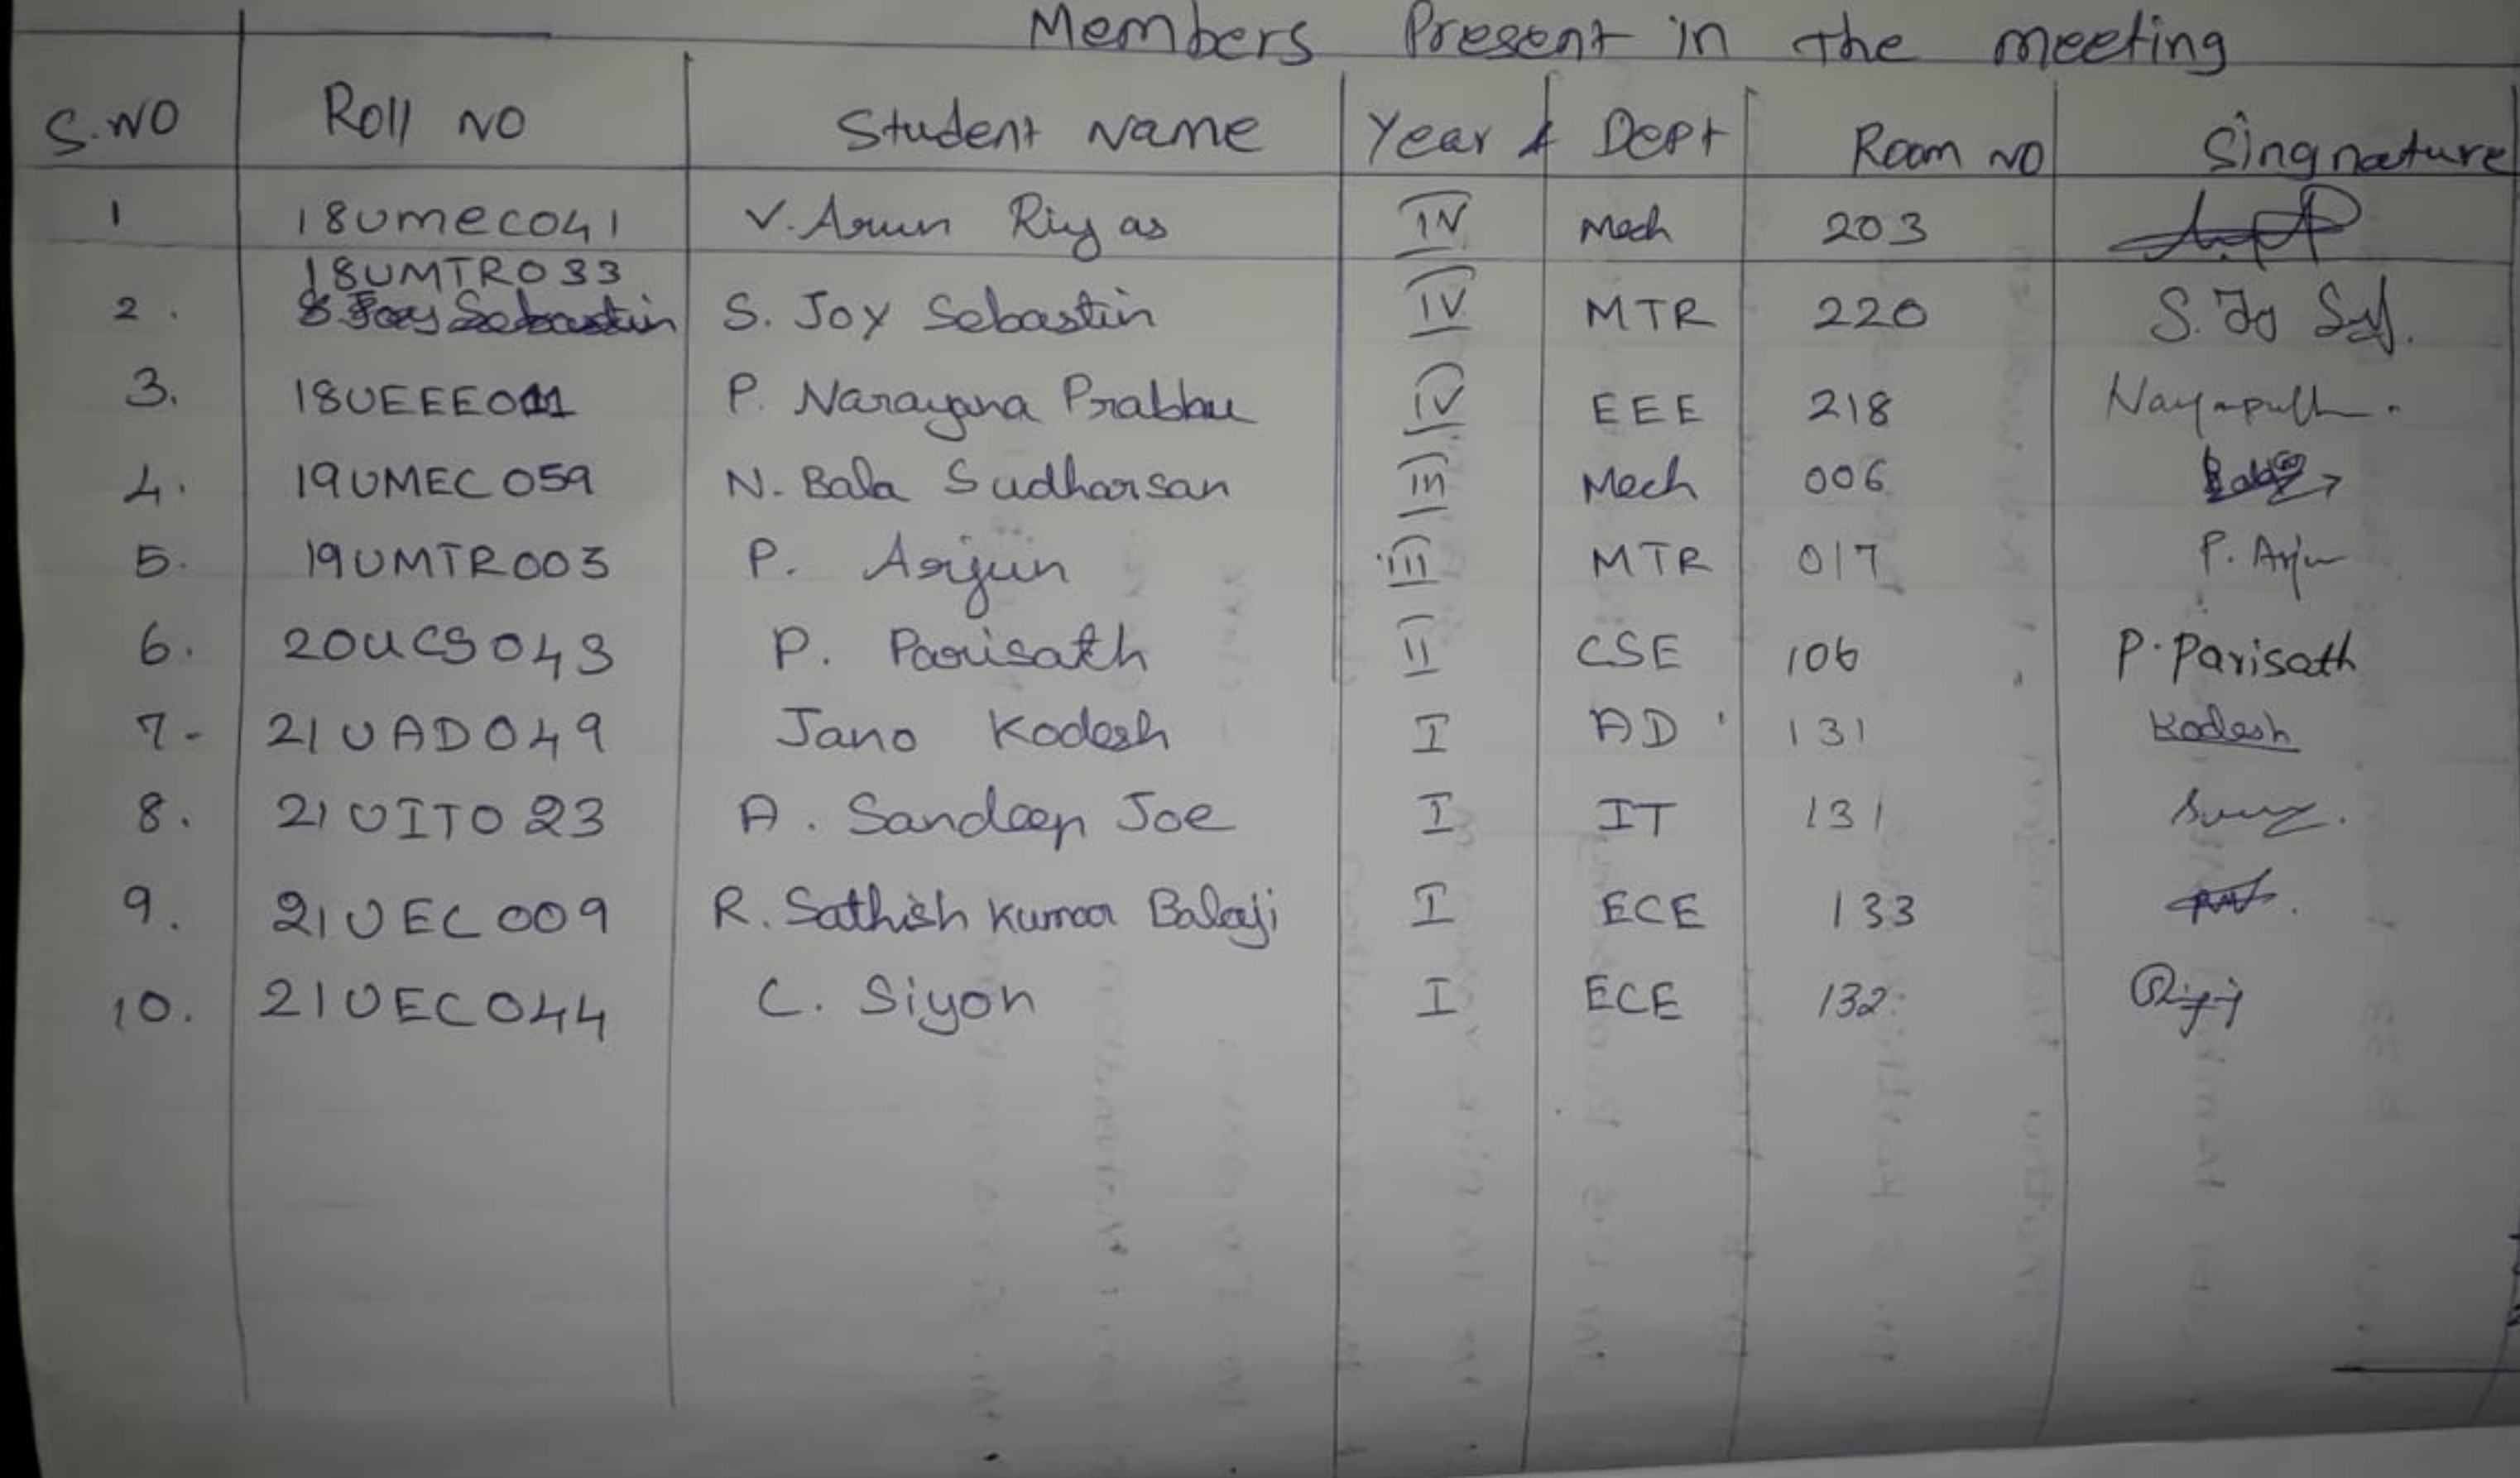 Members Present in the meeting
S.NO Roll NO Student Name Year & Dept Room NO Singnature
1 18UMEC041 V. Arun Riyas IV Mech 203
18UMTR033
2. S. Joy Sebastin IV MTR 220 S. Joy
3. 18UEEE011 P. Narayana Prabhu IV EEE 218
4. 19UMEC059 N. Bala Sudharsan III Mech 006
5. 19UMTR003 P. Arijun III MTR 017 P. Arju
6. 20UCS043 P. Parisath II CSE 106 P. Parisath
7- 21UAD049 Jano Kodesh I AD 131 Kodesh
8. 21UIT023 A. Sandeep Joe I IT 131
9. 21UEC009 R. Sathish Kumar Balaji I ECE 133
10. 21UEC044 C. Siyon I ECE 132